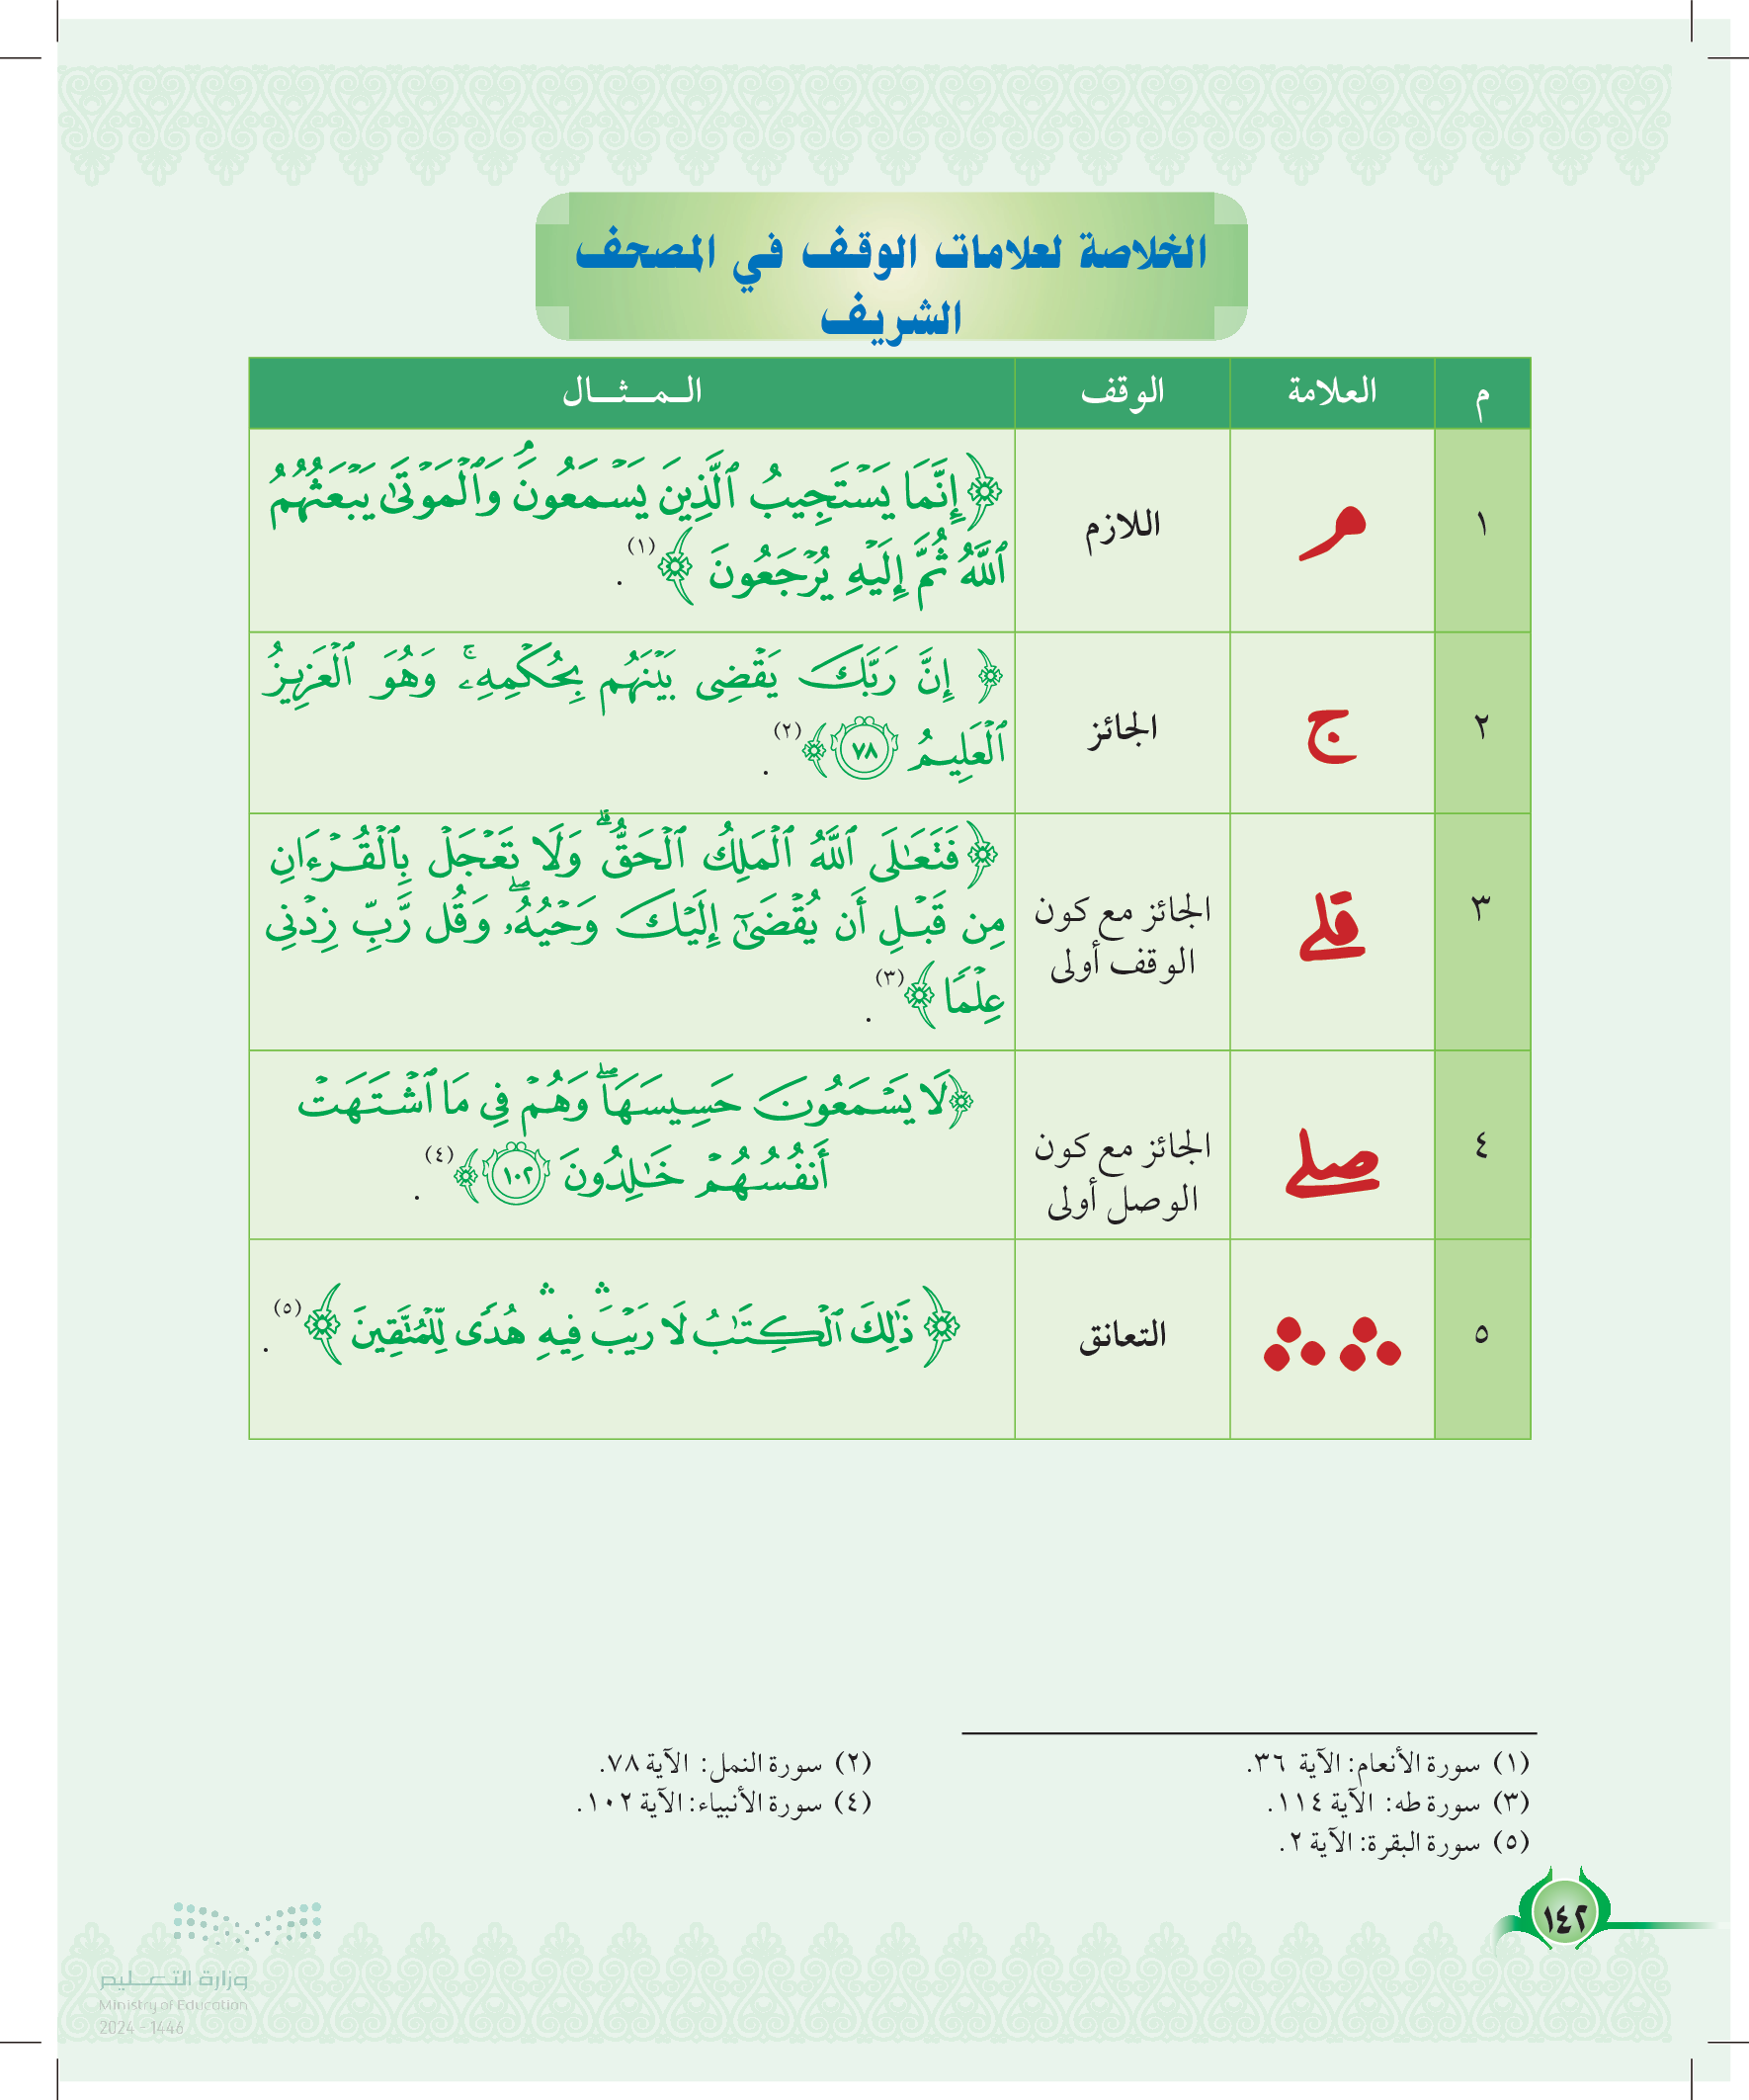 الخلاصة لعلامات الوقف في المصحف
الشريف
م العلامة الوقف الـمـثـال
١ مـ اللازم ﴿إِنَّمَا يَسْتَجِيبُ ٱلَّذِينَ يَسْمَعُونَۘ وَٱلْمَوْتَىٰ يَبْعَثُهُمُ
ٱللَّهُ ثُمَّ إِلَيْهِ يُرْجَعُونَ ﴾(١) .
٢ ج الجائز ﴿ إِنَّ رَبَّكَ يَقْضِى بَيْنَهُم بِحُكْمِهِۦۚ وَهُوَ ٱلْعَزِيزُ
ٱلْعَلِيمُ ٧٨﴾(٢) .
﴿فَتَعَـٰلَى ٱللَّهُ ٱلْمَلِكُ ٱلْحَقُّۗ وَلَا تَعْجَلْ بِٱلْقُرْءَانِ
٣ قلے الجائز مع كون مِن قَبْلِ أَن يُقْضَىٰٓ إِلَيْكَ وَحْيُهُۥۖ وَقُل رَّبِّ زِدْنِى
الوقف أولى عِلْمًا﴾(٣) .
﴿لَا يَسْمَعُونَ حَسِيسَهَاۖ وَهُمْ فِى مَا ٱشْتَهَتْ
٤ صلے الجائز مع كون أَنفُسُهُمْ خَـٰلِدُونَ ١٠٢﴾(٤) .
الوصل أولى
٥ ∴ ∴ التعانق ﴿ذَٰلِكَ ٱلْكِتَـٰبُ لَا رَيْبَۛ فِيهِۛ هُدًى لِّلْمُتَّقِينَ﴾(٥) .
(١) سورة الأنعام: الآية ٣٦.
(٢) سورة النمل: الآية ٧٨.
(٣) سورة طه: الآية ١١٤.
(٤) سورة الأنبياء: الآية ١٠٢.
(٥) سورة البقرة: الآية ٢.
١٤٢
وزارة التـعـلـيم
Ministry of Education
2024 - 1446